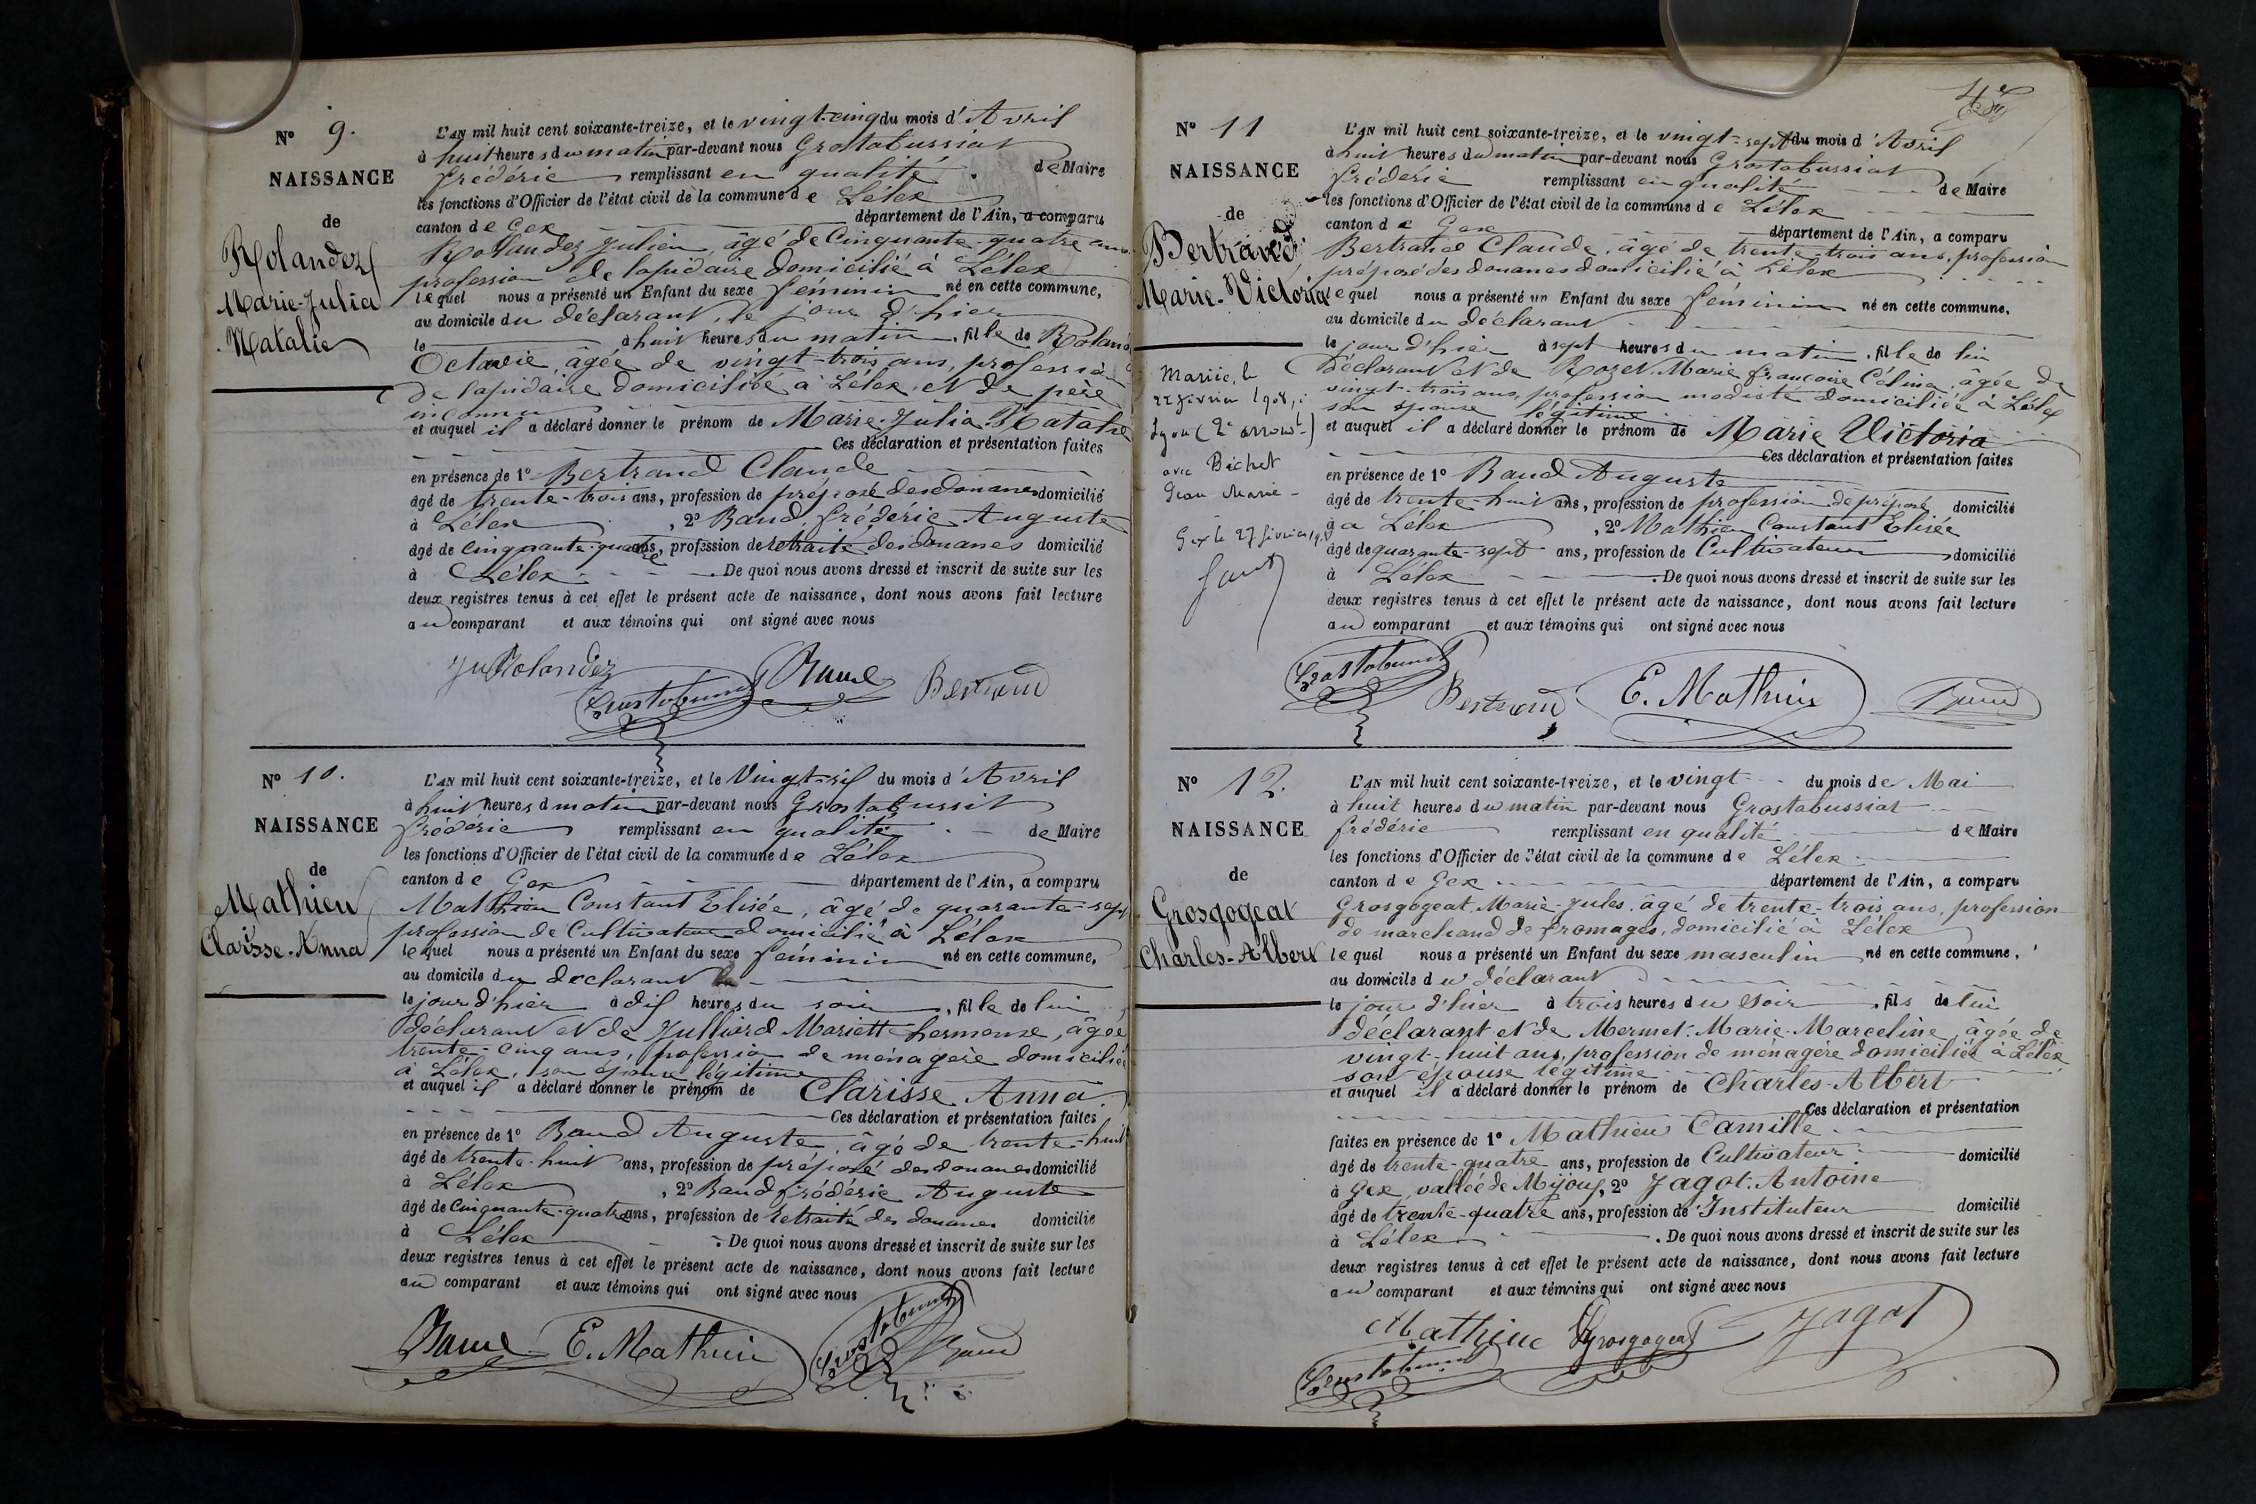 N° 9.
NAISSANCE
de
Rolandez
Marie-Julia
Natalie
L'AN mil huit cent soixante-treize, et le vingt-cinq du mois d'Avril
à huit heures du matin par-devant nous Grostabussiat
frédéric remplissant en qualité de Maire
les fonctions d'Officier de l'état civil de la commune de Lélex
canton de Gex département de l'Ain, a comparu
Rolandez Julien, âgé de Cinquante-quatre ans
profession de lapidaire domicilié à Lélex
lequel nous a présenté un Enfant du sexe féminin né en cette commune,
au domicile du déclarant, le jour d'hier
le à huit heures du matin, fille de Roland
Octavie, âgée de vingt-trois ans, profession
de lapidaire domiciliée à Lélex, et de père
inconnu
et auquel il a déclaré donner le prénom de Marie-Julia Natalie
Ces déclaration et présentation faites
en présence de 1° Bertrand Claude
âgé de trente-trois ans, profession de préposé des douanes domicilié
à Lélex, 2° Baud frédéric Auguste
âgé de cinquante-quatre ans, profession de retraité des douanes domicilié
à Lélex. De quoi nous avons dressé et inscrit de suite sur les
deux registres tenus à cet effet le présent acte de naissance, dont nous avons fait lecture
au comparant et aux témoins qui ont signé avec nous
Ju Rolandez
Grostabussiat Baud Bertrand
N° 10.
NAISSANCE
de
Mathieu
Clarisse-Anna
L'AN mil huit cent soixante-treize, et le Vingt-six du mois d'Avril
à huit heures d matin par-devant nous Grostabussit
frédéric remplissant en qualité de Maire
les fonctions d'Officier de l'état civil de la commune de Lélex
canton de Gex département de l'Ain, a comparu
Mathieu Constant Elisée, âgé de quarante-sept
profession de Cultivateur domicilié à Lélex
lequel nous a présenté un Enfant du sexe féminin né en cette commune,
au domicile du declarant
le jour d'hier à dix heures du soir, fille de lui
déclarant et de Julliard Mariette hermense, âgée
trente-cinq ans, profession de ménagère domiciliée
à Lélex, son épouse légitime
et auquel il a déclaré donner le prénom de Clarisse Anna
Ces déclaration et présentation faites
en présence de 1° Baud Auguste, âgé de trente-huit
âgé de trente-huit ans, profession de préposé des douanes domicilié
à Lélex, 2° Baud frédéric Auguste
âgé de Cinquante-quatre ans, profession de retraité des douanes domicilié
à Lélex. De quoi nous avons dressé et inscrit de suite sur les
deux registres tenus à cet effet le présent acte de naissance, dont nous avons fait lecture
au comparant et aux témoins qui ont signé avec nous
Baud E. Mathieu Grostabussiat Baud
N° 11
NAISSANCE
de
Bertrand
Marie-Victoria
Mariée, le
22 février 1908,
Lyon (2e arrond.t)
avec Bichet
Jean Marie
Gex le 27 février 1908
L'AN mil huit cent soixante-treize, et le vingt-sept du mois d'Avril
à huit heures du matin par-devant nous Grostabussiat
frédéric remplissant en qualité de Maire
les fonctions d'Officier de l'état civil de la commune de Lélex
canton de Gex département de l'Ain, a comparu
Bertrand Claude, âgé de trente-trois ans, profession
préposé des douanes domicilié à Lélex
lequel nous a présenté un Enfant du sexe féminin né en cette commune,
au domicile du déclarant
le jour d'hier à sept heures du matin, fille de lui
déclarant et de Rozet Marie françoise Célina, âgée de
vingt-trois ans, profession modiste domiciliée à Lélex
son épouse légitime
et auquel il a déclaré donner le prénom de Marie Victoria
Ces déclaration et présentation faites
en présence de 1° Baud Auguste
âgé de trente-huit ans, profession de profession de préposé domicilié
à a Lélex, 2° Mathieu Constant Elisée
âgé de quarante-sept ans, profession de Cultivateur domicilié
à Lélex. De quoi nous avons dressé et inscrit de suite sur les
deux registres tenus à cet effet le présent acte de naissance, dont nous avons fait lecture
au comparant et aux témoins qui ont signé avec nous
Grostabussiat Bertrand E. Mathieu Baud
N° 12.
NAISSANCE
de
Grosgogeat
Charles-Albert
L'AN mil huit cent soixante-treize, et le vingt du mois de Mai
à huit heures du matin par-devant nous Grostabussiat
frédéric remplissant en qualité de Maire
les fonctions d'Officier de l'état civil de la commune de Lélex
canton de Gex département de l'Ain, a comparu
Grosgogeat, Marie-Jules, âgé de trente-trois ans, profession
de marchand de fromages, domicilié à Lélex
lequel nous a présenté un Enfant du sexe masculin né en cette commune,
au domicile du déclarant
le jour d'hier à trois heures du soir, fils de lui
déclarant et de Mermet Marie-Marceline, âgée de
vingt-huit ans, profession de ménagère domiciliée à Lélex
son épouse légitime
et auquel il a déclaré donner le prénom de Charles-Albert
Ces déclaration et présentation
faites en présence de 1° Mathieu Camille
âgé de trente-quatre ans, profession de Cultivateur domicilié
à Gex, vallée de Mijoux, 2° Jagot Antoine
âgé de trente-quatre ans, profession de Instituteur domicilié
à Lélex. De quoi nous avons dressé et inscrit de suite sur les
deux registres tenus à cet effet le présent acte de naissance, dont nous avons fait lecture
au comparant et aux témoins qui ont signé avec nous
Mathieu Grosgogeat Jagot
Grostabussiat